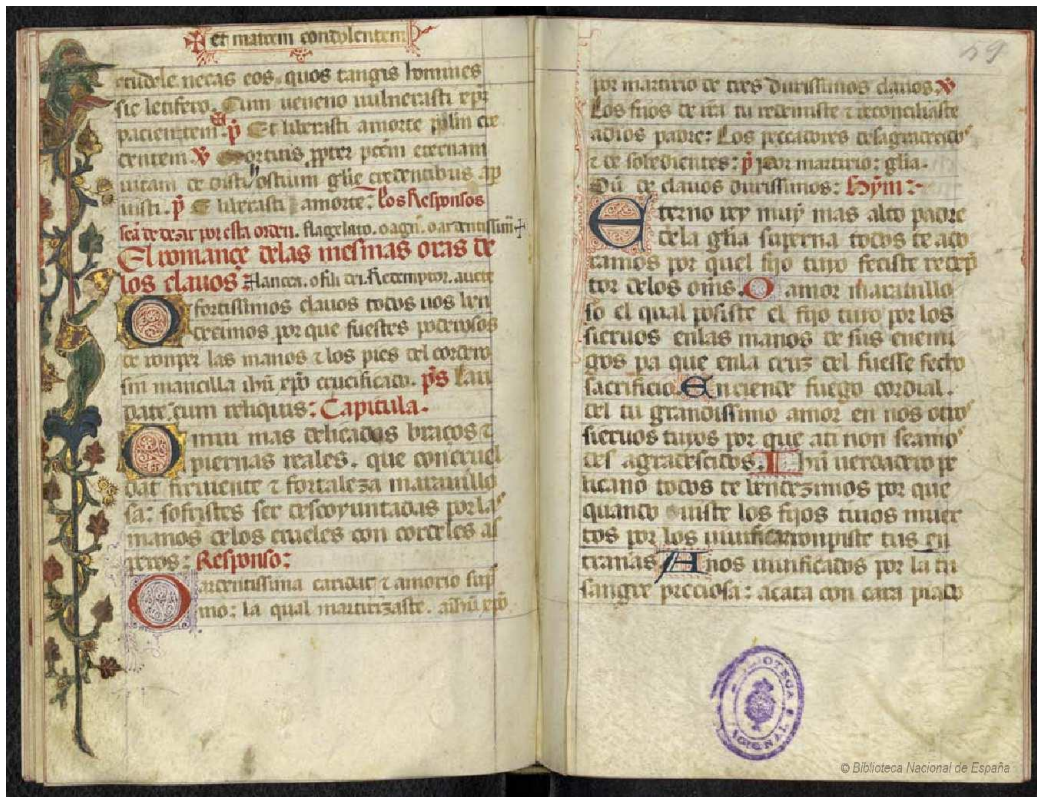 et matrem condolentem
crudele necas eos. quos tangis homines
sic letifero. Cum ueneno uulnerasti xpm
pacientem. p Et liberasti a morte pplm cre
dentem. v Mortuis ppter pctm eternam
uitam dedisti hostium glie credentibus ap
uisti. p E liberasti a morte: los Responsos
sea de dezir por esta orden. flagelato. o agni. o ardentissim
El romance delas mesmas oras de
los clauos: lancea. o fili dei. Redemptor. aucte
O fortissimos clauos todos uos ben
dezimos por que fuestes poderosos
de ronper las manos τ los pies del cordero
sin manzilla ihu xpo crucificado. ps lau
date. cum reliquis: Capitula.
O mui mas delicados braços τ
piernas reales. que con cruel
dat firuiente τ fortaleza marauillo
sa: sofristes ser descoyuntadas por las
manos delos crueles con cordeles as
peros: Responso:
O ardentissima caridat τ amorio sup
mo: la qual martirizaste. a ihu xpo
59
por martirio de tres durissimos clauos. v
Los fijos de ira tu redemiste τ reconciliaste
a dios padre: Los peccadores desagradecidos
τ desobedientes: p por martirio: glia.
De clauos durissimos: hym:
Eterno rey muy mas alto padre
dela glia superna todos te ado
ramos por quel fijo tuyo feciste redep
tor delos oms. O amor marauillo
so el qual posiste el fijo tuyo por los
sieruos enlas manos de sus enemi
gos pa que enla cruz del fuesse fecho
sacrificio. Enciende fuego cordial.
del tu grandissimo amor en nos otros
sieruos tuyos por que a ti non seamos
des agradescidos. Ihu uerdadero pe
licano todos te bendezimos por que
quando uiste los fijos tuios muer
tos por los uiuificar ronpiste tus en
trañas. A nos uiuificados por la tu
sangre preciosa: acata con cara piado
BIBLIOTECA NACIONAL
© Biblioteca Nacional de España